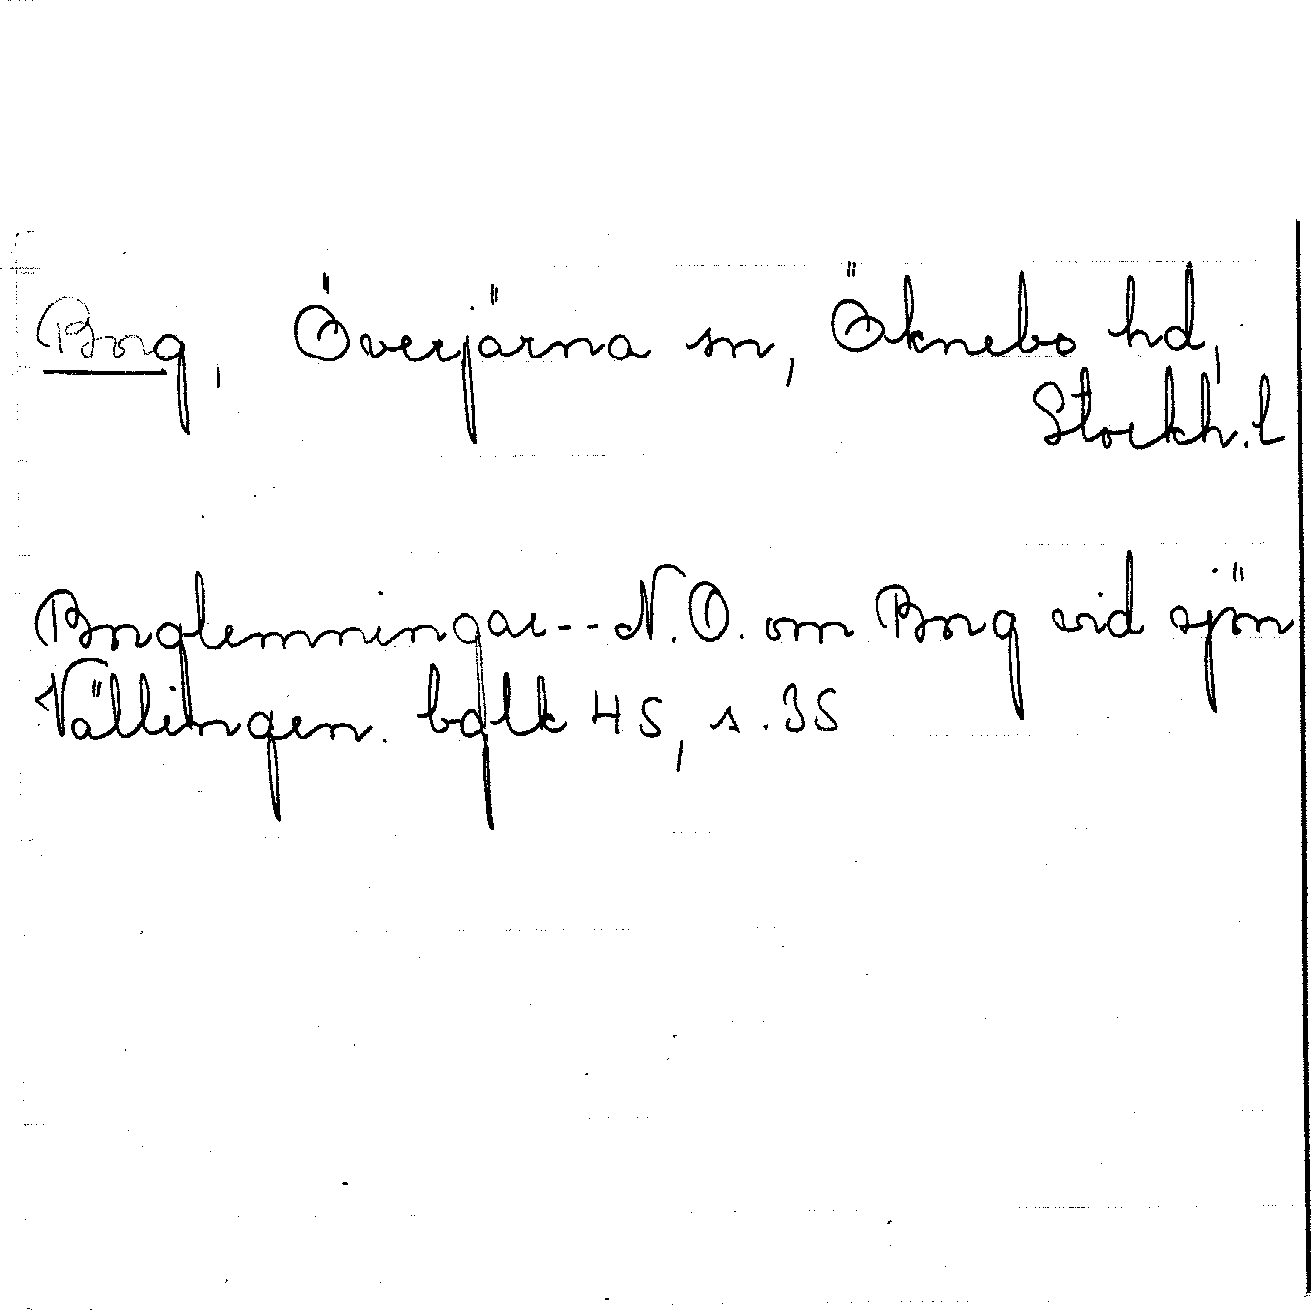 Borg, Överjärna sn, Öknebo hd,
Stockh. l
Borglemningar -- N.O. om Borg vid sjön
Vällingen. bglk 45, s. 35